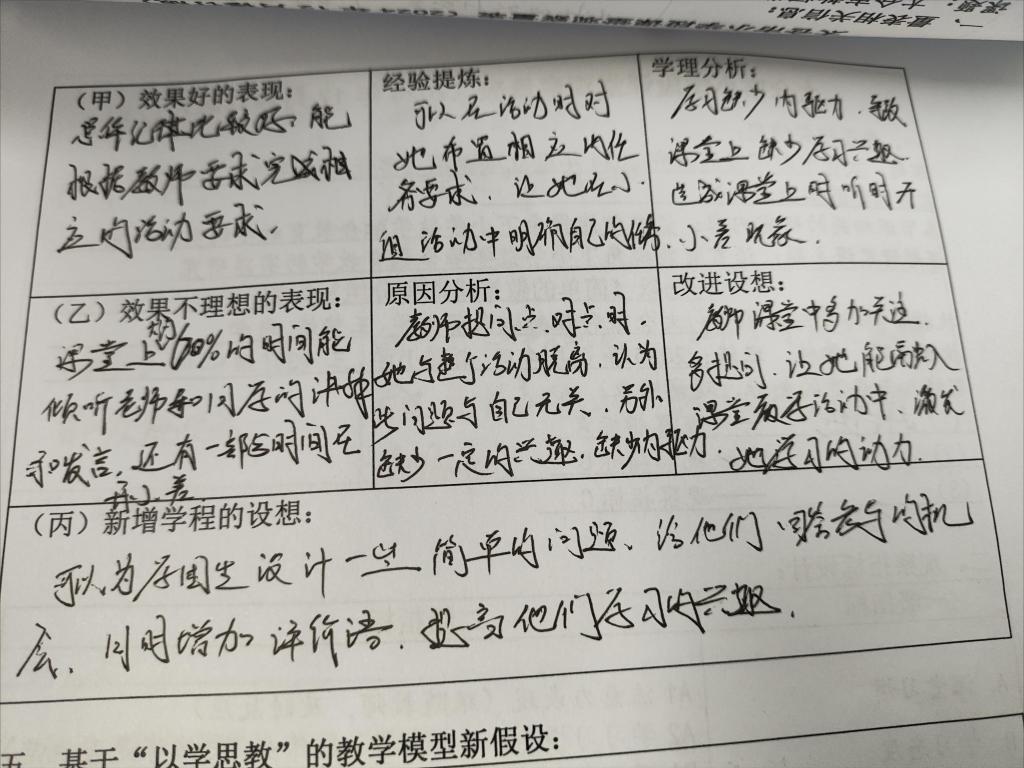 一、量表相关信息:
课题:
(甲)效果好的表现:
思伴纪律比较好,能
根据教师要求完成相
应的活动要求.
经验提炼:
可以在活动时对
她布置相应的任
务要求,让她在小
组活动中明确自己的
学理分析:
学习缺少内驱力,导致
课堂上缺少学习兴趣
造成课堂上时听时开
小差现象.
(乙)效果不理想的表现:
课堂上大约60%的时间能
倾听老师和同学的讲解
和发言,还有一部分时间在
开小差.
原因分析:
教师提问点,时点时,
她与整个活动脱离,认为
此问题与自己无关.另外
缺少一定的兴趣,缺少内驱力.
改进设想:
教师课堂中多加关注,
多提问,让她能融入
课堂教学活动中、激发
她学习的动力.
(丙)新增学程的设想:
可以为学困生设计一些简单的问题、给他们回答参与的机
会,同时增加评价语.提高他们学习的兴趣.
五、基于“以学思教”的教学模型新假设: